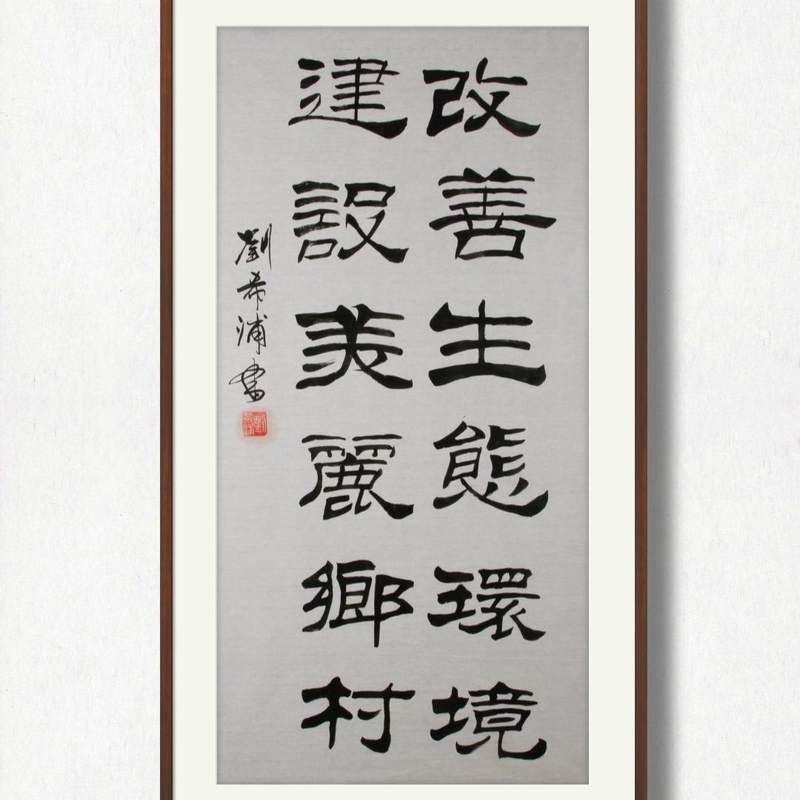 改善生態環境
建設美麗鄉村
劉希浦書